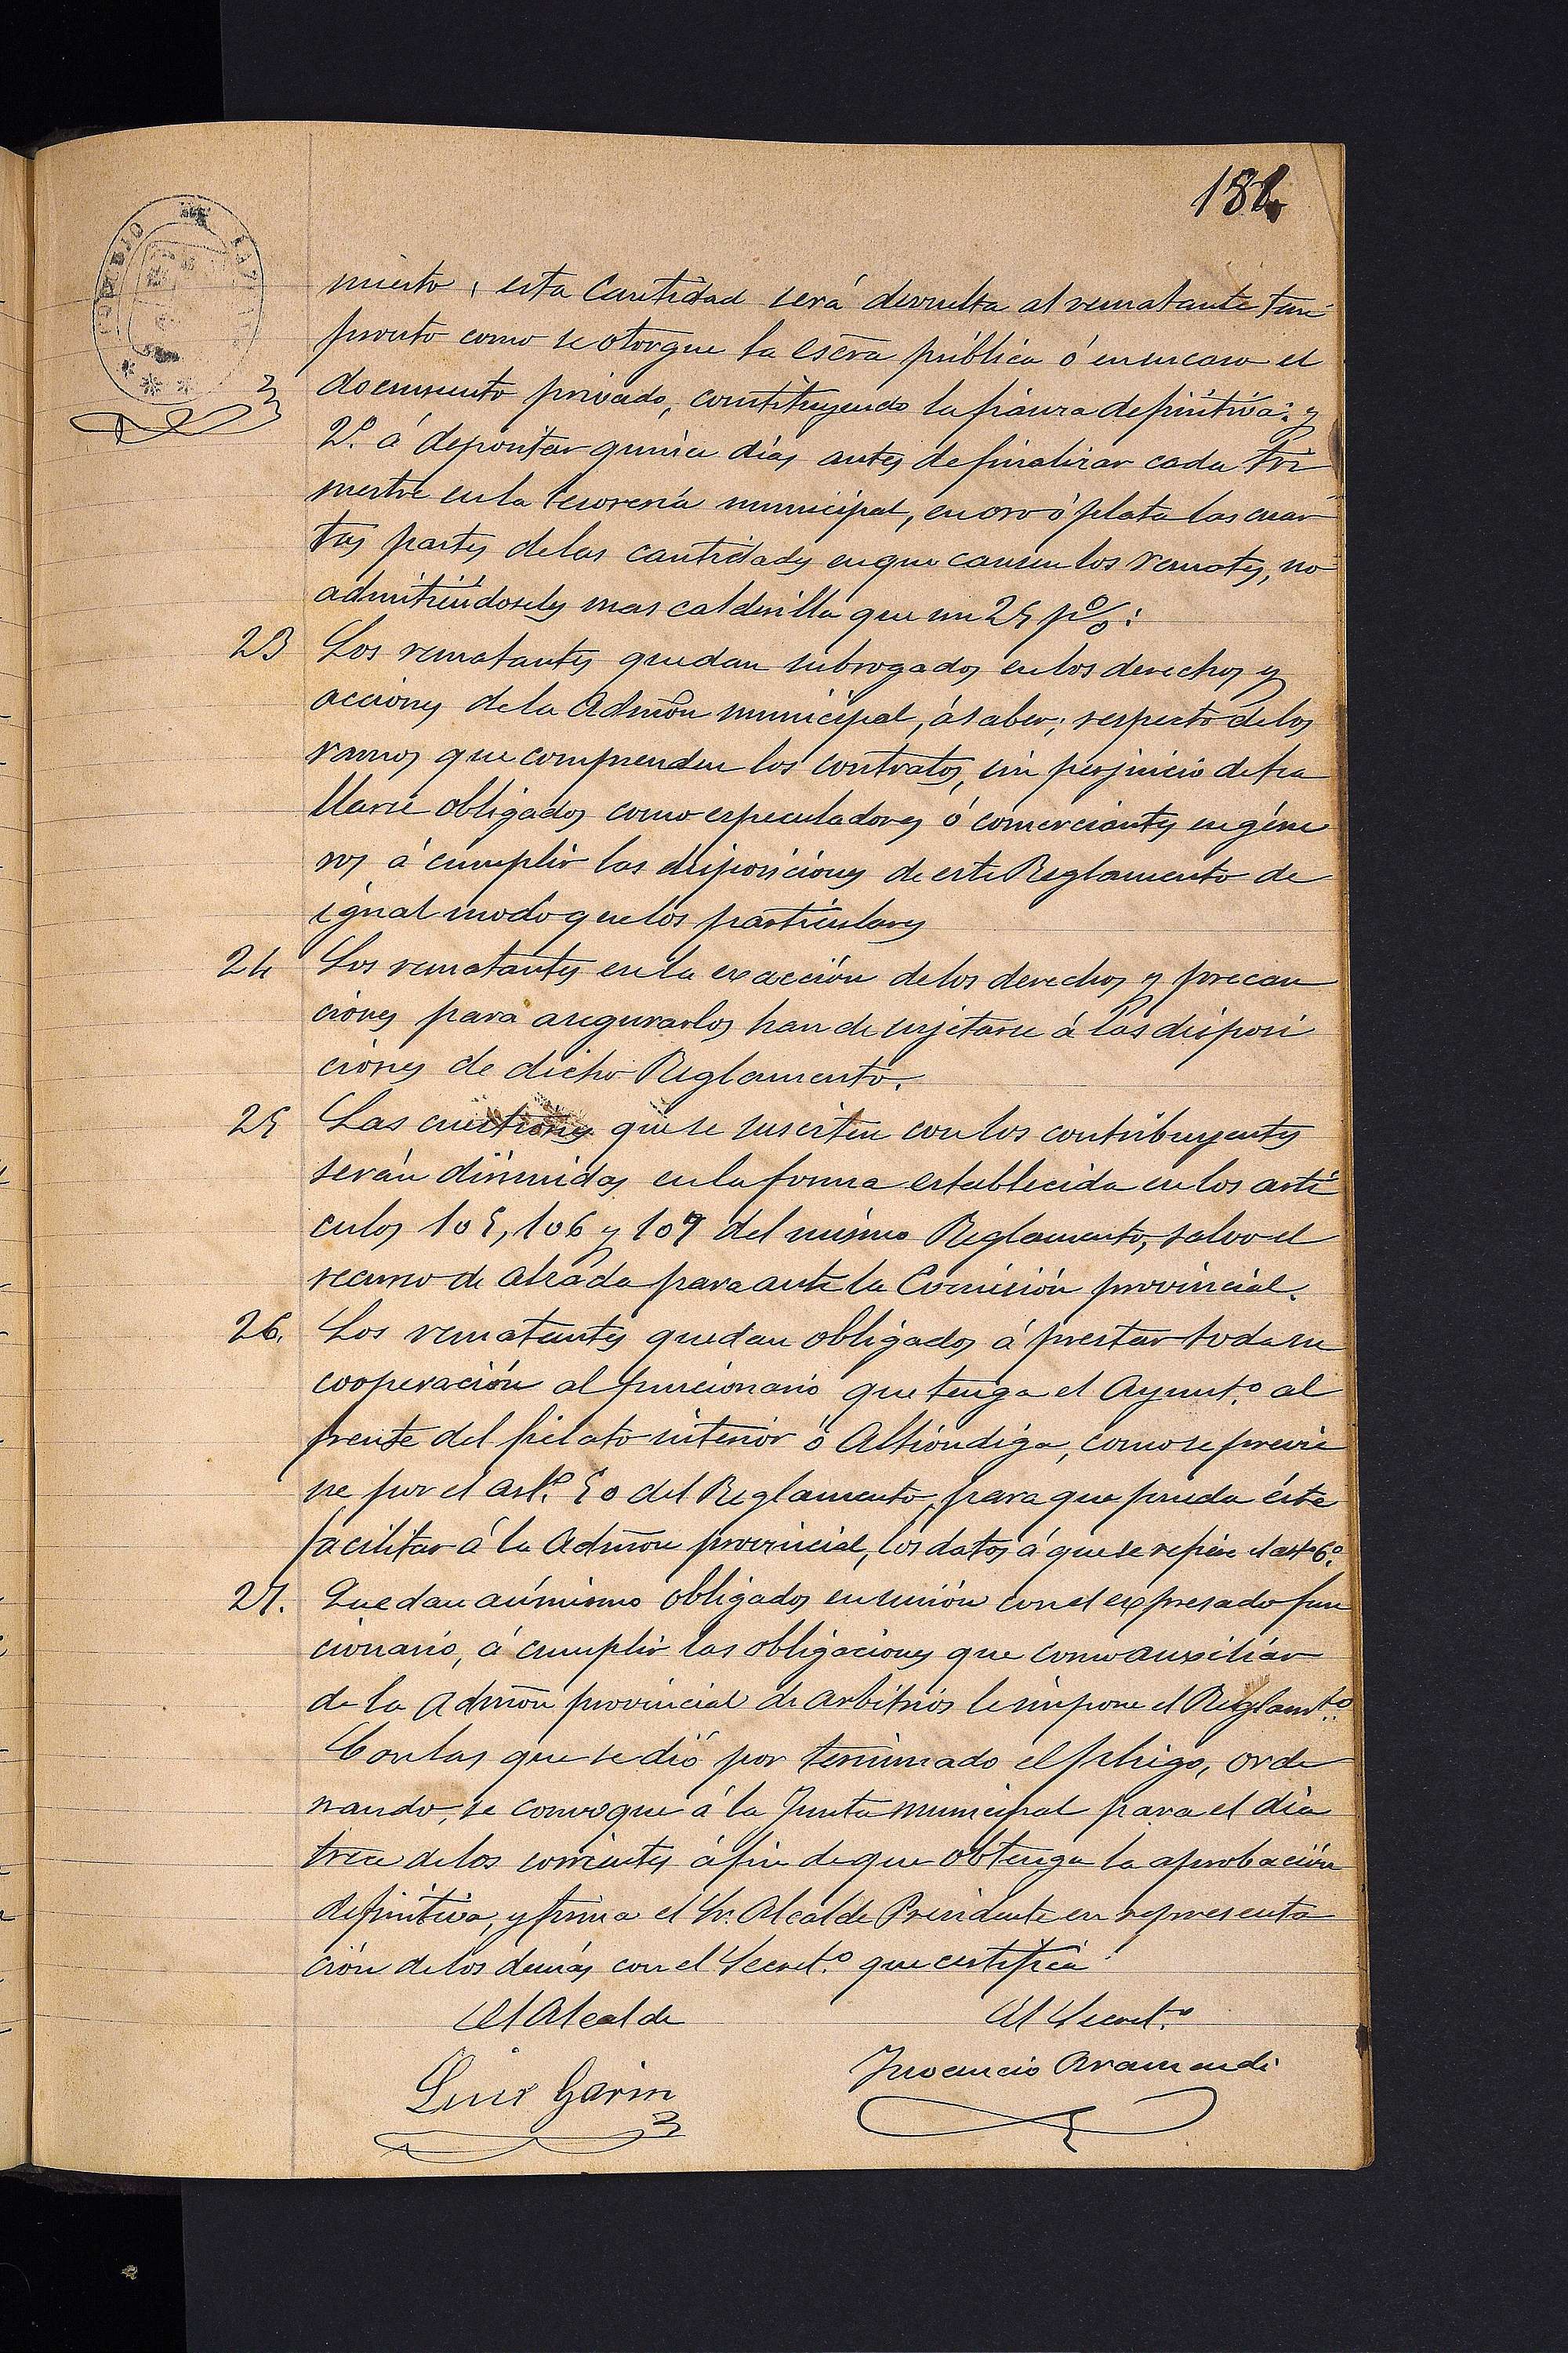 181
miento, esta cantidad será devuelta al rematante tan
pronto como se otorgue la escra pública ó en su caso el
documento privado, constituyendo la fianza definitiva: y
2.º á depositar quince días antes de finalizar cada tri
mestre en la tesorería municipal, en oro ó plata las cuar
tas partes de las cantidades en que causen los remates, no
admitiéndoseles mas calderilla que un 25 p%:
23 Los rematantes quedan subrogados en los derechos y
acciones de la Admon municipal, á saber; respecto de los
ramos que comprenden los contratos, sin perjuicio de ha
llarse obligados como especuladores ó comerciantes en géne
ros á cumplir las disposiciones de este Reglamento de
igual modo que los particulares
24 Los rematantes en la exacción de los derechos y precau
ciones para asegurarlos han de sujetarse á las disposi
ciones de dicho Reglamento.
25 Las cuestiones que se susciten con los contribuyentes
serán dirimidas en la forma establecida en los artí
culos 105, 106 y 107 del mismo Reglamento, salvo el
recurso de alzada para ante la Comisión provincial.
26. Los rematantes quedan obligados á prestar toda su
cooperación al funcionario que tenga el Ayunt.º al
frente del fielato interior ó Alhóndiga, como se previe
ne por el art.º 50 del Reglamento, para que pueda éste
facilitar á la Admon provincial, los datos á que se refiere el artº 6º.
27. Quedan asímismo obligados en unión con el expresado fun
cionario, á cumplir las obligaciones que como auxiliar
de la Admon provincial de arbitrios le impone el Reglamtº.
Con las que se dió por terminado el pliego, orde
nando, se convoque á la Junta municipal para el día
trece de los corrientes á fin de que obtenga la aprobación
definitiva, y firma el Sr. Alcalde Presidente en representa
ción de los demás con el Secret.º que certifica.
El Alcalde El Secret.º
Luis Garin Inocencio Aramendi